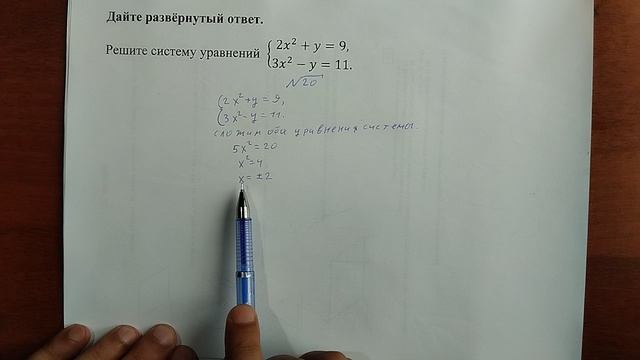 Дайте развёрнутый ответ.
Решите систему уравнений { 2x² + y = 9,
3x² − y = 11.
√20
{ 2x² + y = 9,
3x² − y = 11.
сложим оба уравнения системы.
5x² = 20
x² = 4
x = ±2